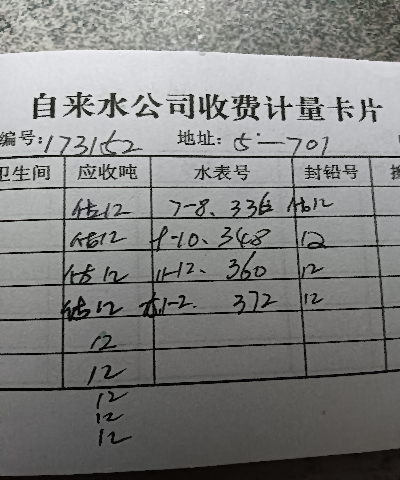 自来水公司收费计量卡片
编号:173152 地址: 5-701
卫生间 应收吨 水表号 封铅号
估12 7-8、336 估12
估12 9-10、348 12
估12 11-12、360 12
估12 1-2. 372 12
12
12
12
12
12